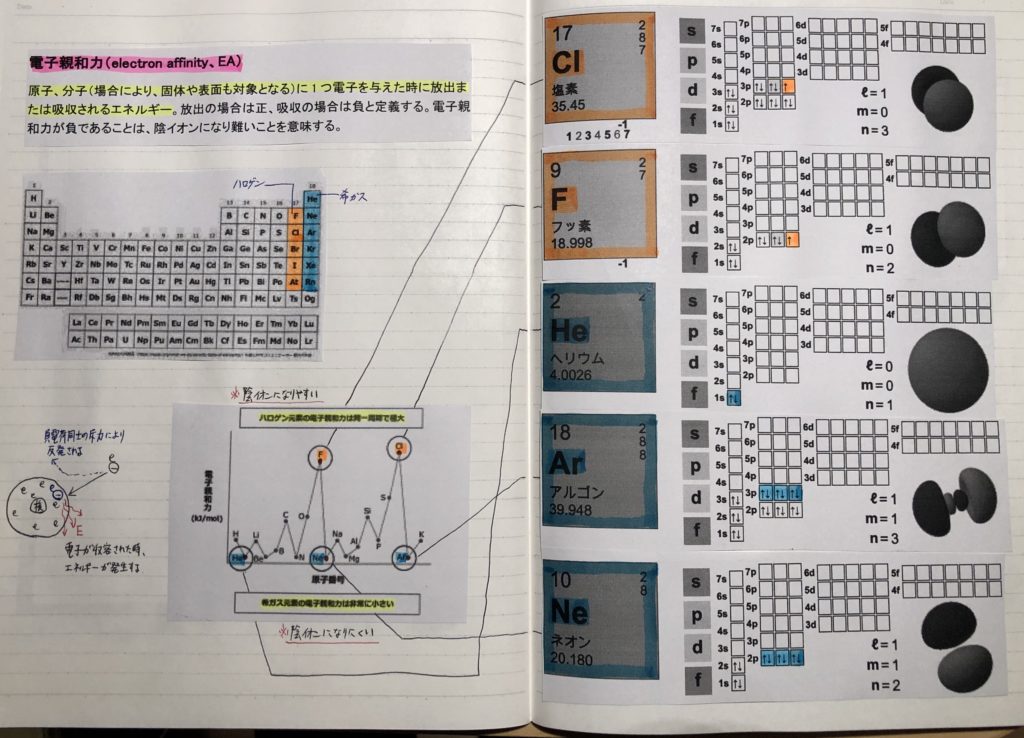 電子親和力(electron affinity、EA)
原子、分子(場合により、固体や表面も対象となる)に1つ電子を与えた時に放出ま
たは吸収されるエネルギー。放出の場合は正、吸収の場合は負と定義する。電子親
和力が負であることは、陰イオンになり難いことを意味する。
ハロゲン
希ガス
1 18
H He
2 13 14 15 16 17
Li Be B C N O F Ne
Na Mg Al Si P S Cl Ar
K Ca Sc Ti V Cr Mn Fe Co Ni Cu Zn Ga Ge As Se Br Kr
Rb Sr Y Zr Nb Mo Tc Ru Rh Pd Ag Cd In Sn Sb Te I Xe
Cs Ba Hf Ta W Re Os Ir Pt Au Hg Tl Pb Bi Po At Rn
Fr Ra Rf Db Sg Bh Hs Mt Ds Rg Cn Nh Fl Mc Lv Ts Og
La Ce Pr Nd Pm Sm Eu Gd Tb Dy Ho Er Tm Yb Lu
Ac Th Pa U Np Pu Am Cm Bk Cf Es Fm Md No Lr
※陰イオンになりやすい
ハロゲン元素の電子親和力は同一周期で極大
電子親和力
(kJ/mol)
H He Li Be B C N O F Ne Na Mg Al Si P S Cl Ar K
原子番号
希ガス元素の電子親和力は非常に小さい
※陰イオンになりにくい
負電荷同士の斥力により
反発される
e e e e e e e
核
E
電子が収容された時、
エネルギーが発生する
17
2
8
7
Cl
塩素
35.45
-1
1 2 3 4 5 6 7
s p d f
7s 6s 5s 4s 3s 2s 1s
7p 6p 5p 4p 3p 2p
6d 5d 4d 3d
5f 4f
ℓ=1
m=0
n=3
9
2
7
F
フッ素
18.998
-1
s p d f
7s 6s 5s 4s 3s 2s 1s
7p 6p 5p 4p 3p 2p
6d 5d 4d 3d
5f 4f
ℓ=1
m=0
n=2
2
2
He
ヘリウム
4.0026
s p d f
7s 6s 5s 4s 3s 2s 1s
7p 6p 5p 4p 3p 2p
6d 5d 4d 3d
5f 4f
ℓ=0
m=0
n=1
18
2
8
8
Ar
アルゴン
39.948
s p d f
7s 6s 5s 4s 3s 2s 1s
7p 6p 5p 4p 3p 2p
6d 5d 4d 3d
5f 4f
ℓ=1
m=1
n=3
10
2
8
Ne
ネオン
20.180
s p d f
7s 6s 5s 4s 3s 2s 1s
7p 6p 5p 4p 3p 2p
6d 5d 4d 3d
5f 4f
ℓ=1
m=1
n=2